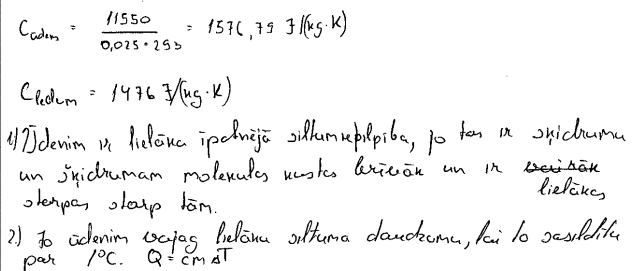 Cūdens = 11550 / 0,025 · 293 = 1576,79 J/(kg·K)
Cledum = 1476 J/(kg·K)
1) Ūdenim ir lielāka īpatnējā siltumietilpība, jo tas ir šķidrums
un šķidrumam molekulas kustas brīvāk un ir lielākas
starpas starp tām.
2.) Jo ūdenim vajag lielāku siltuma daudzumu, lai to sasildītu
par 1°C. Q = cmΔT